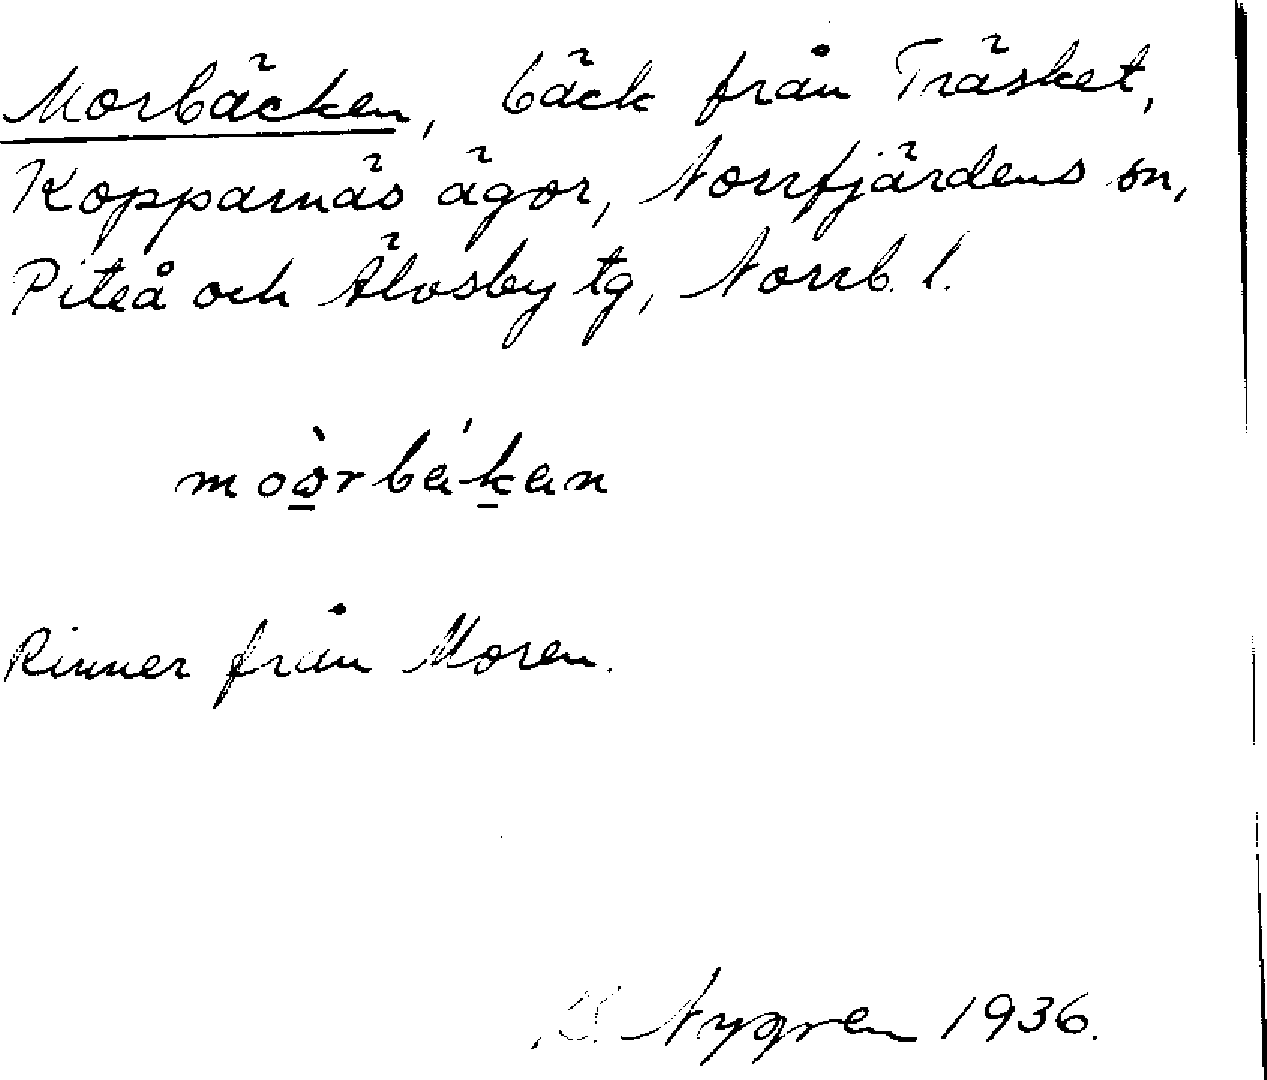 Morbäcken, bäck från Träsket,
Kopparnäs ägor, Norrfjärdens sn,
Piteå och Älvsby tg, Norrb. l.
moòrbá·kan
Rinner från Moren.
Nygren 1936.